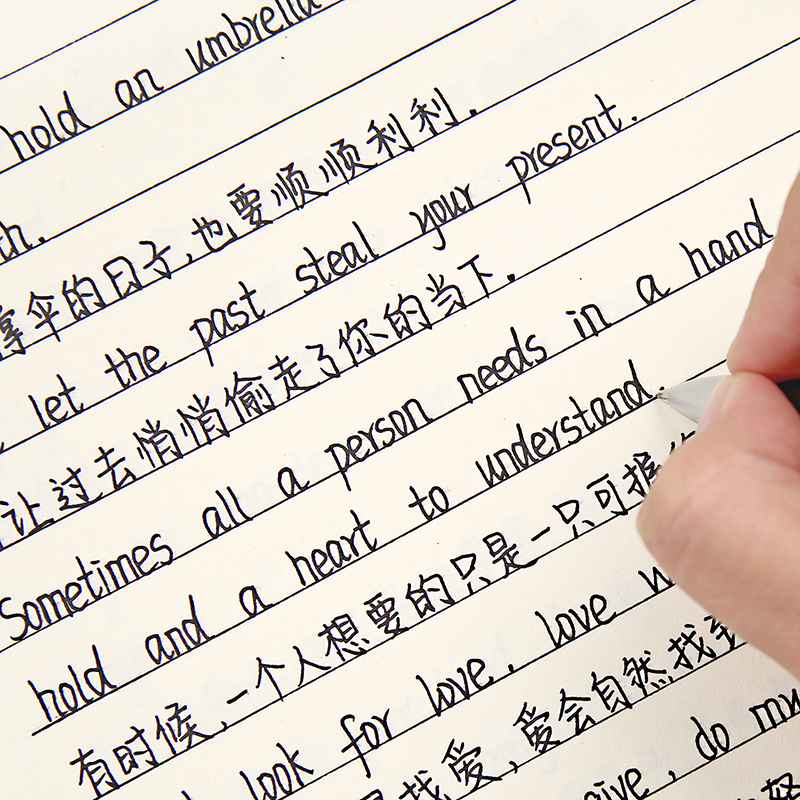 hold an umbrella
th.
撑伞的日子,也要顺顺利利.
let the past steal your present.
让过去悄悄偷走了你的当下.
Sometimes all a person needs in a hand
hold and a heart to understand.
有时候,一个人想要的只是一只可握
look for love. love
找爱,爱会自然找到
give, do mu